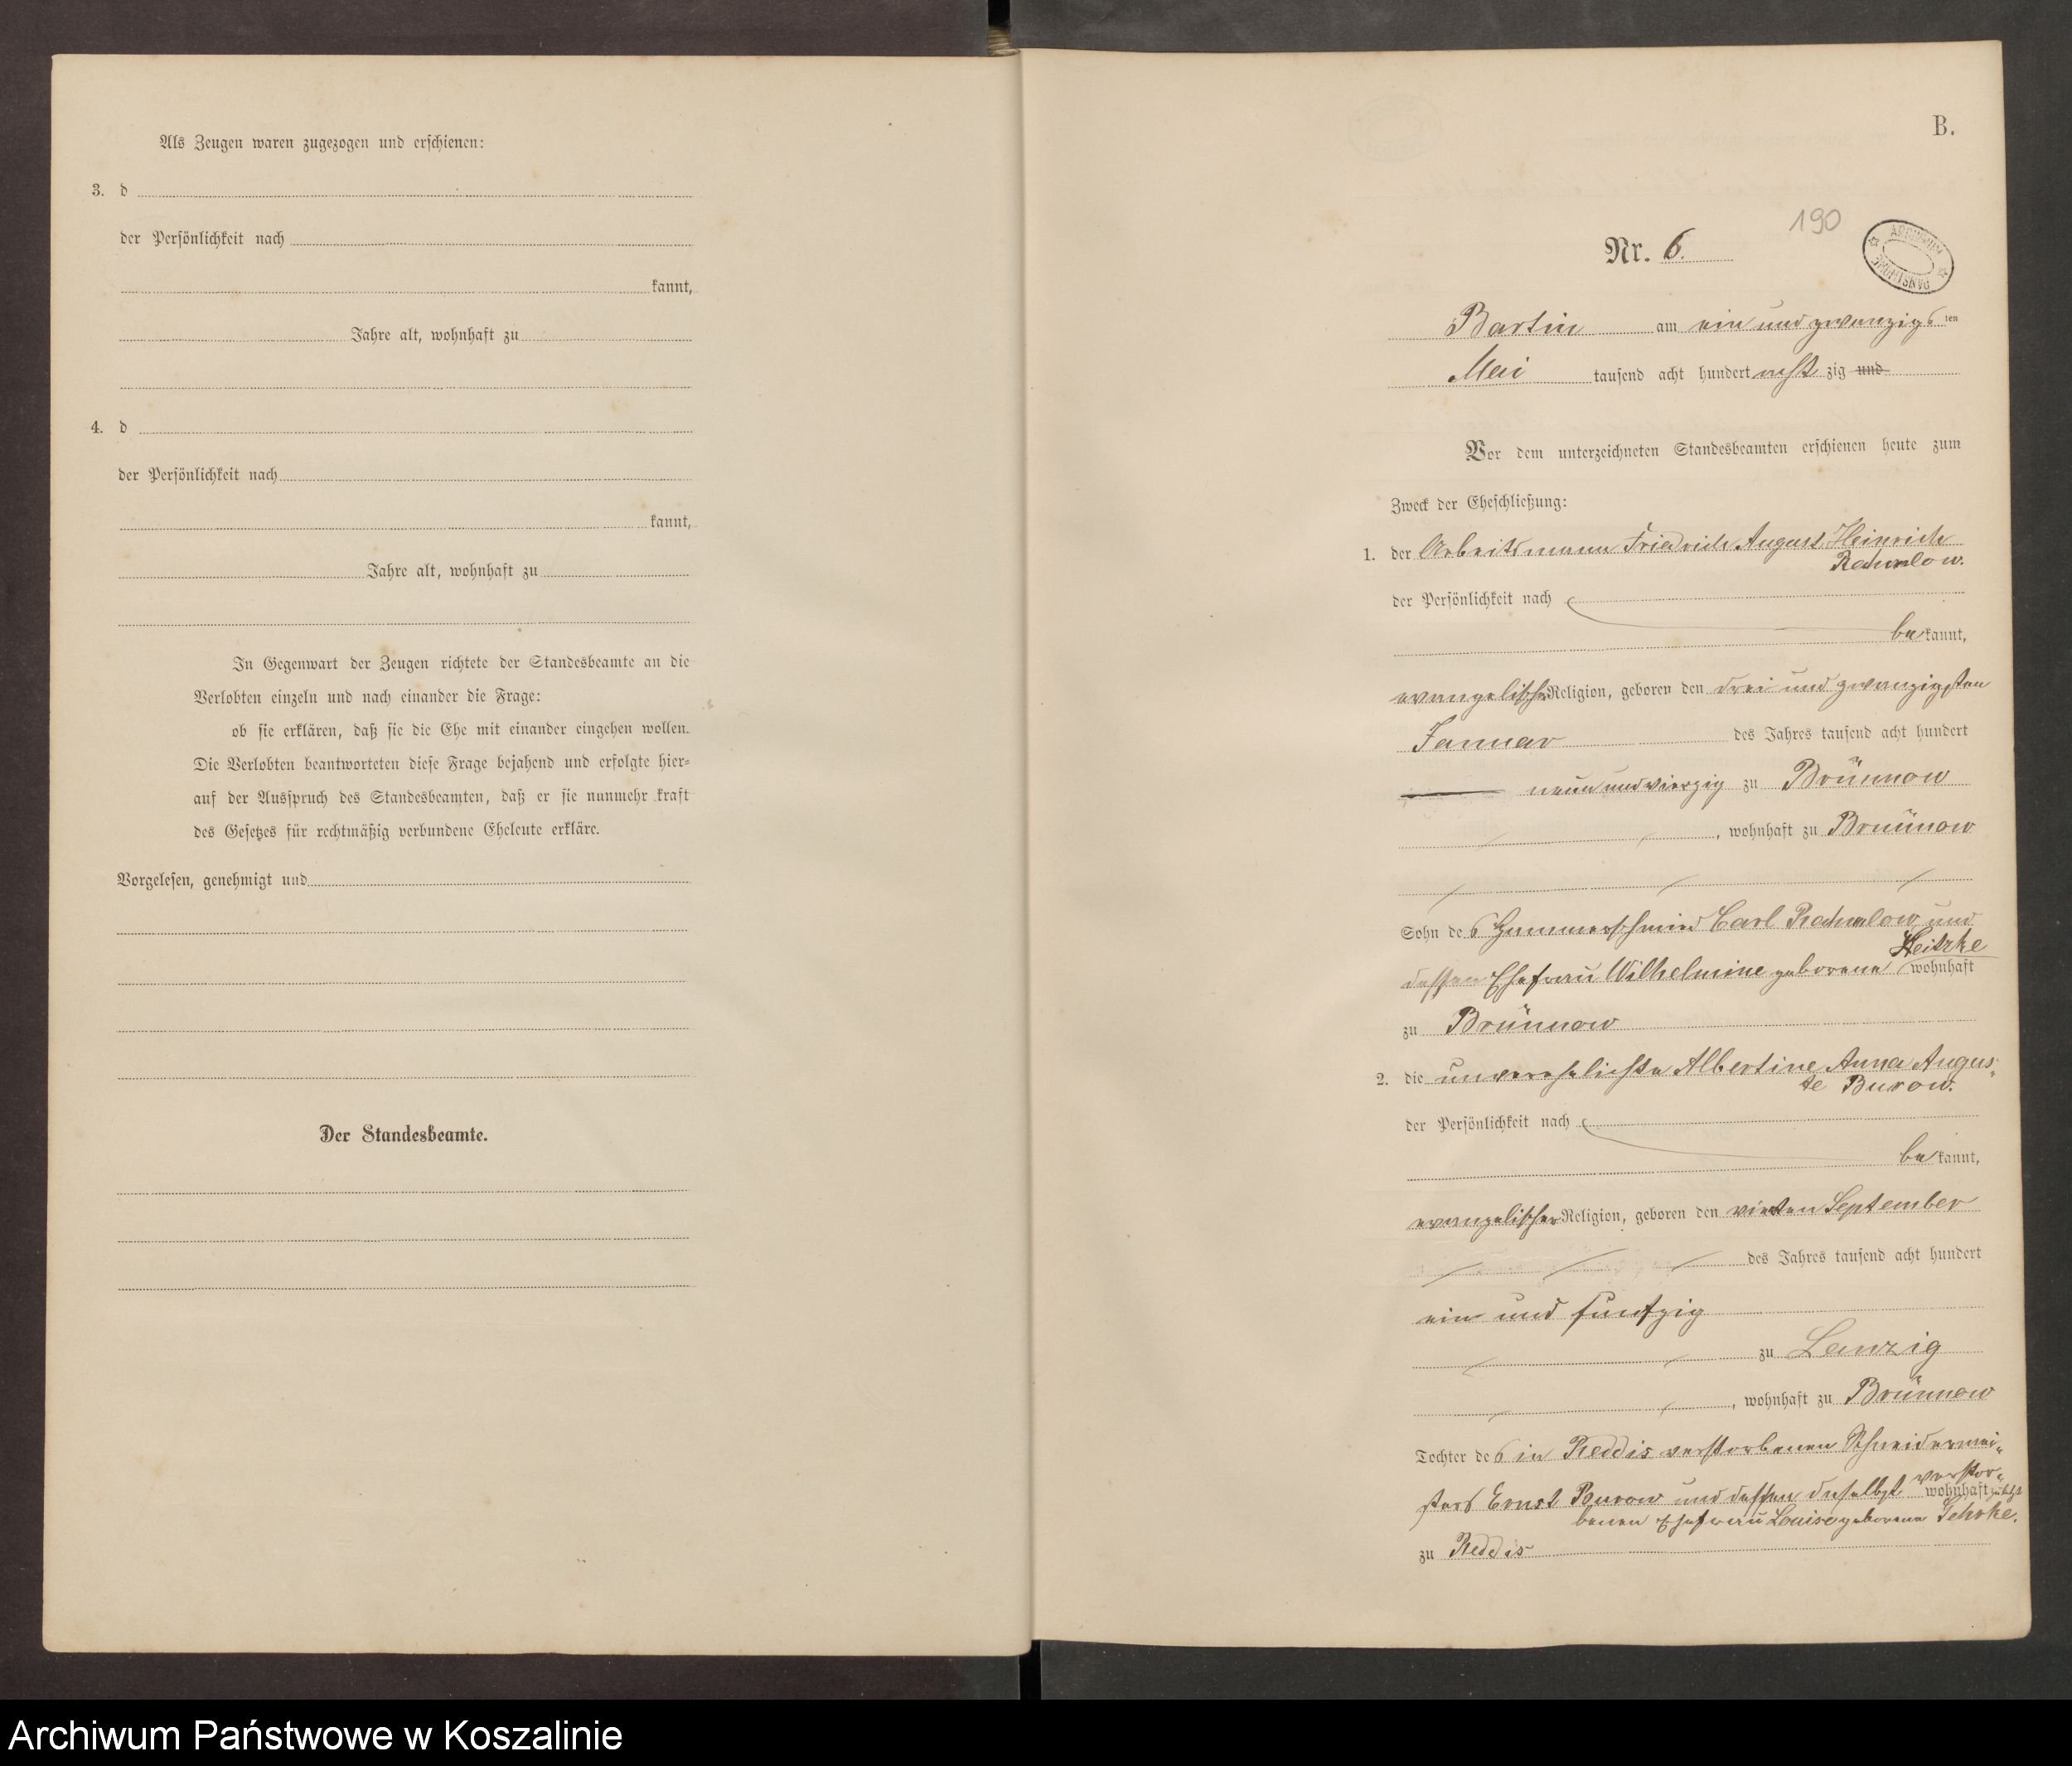 Als Zeugen waren zugezogen und erschienen:
3. d
der Persönlichkeit nach
kannt,
Jahre alt, wohnhaft zu
4. d
der Persönlichkeit nach
kannt,
Jahre alt, wohnhaft zu
In Gegenwart der Zeugen richtete der Standesbeamte an die
Verlobten einzeln und nach einander die Frage:
ob sie erklären, daß sie die Ehe mit einander eingehen wollen.
Die Verlobten beantworteten diese Frage bejahend und erfolgte hier-
auf der Ausspruch des Standesbeamten, daß er sie nunmehr kraft
des Gesetzes für rechtmäßig verbundene Eheleute erkläre.
Vorgelesen, genehmigt und
Der Standesbeamte.
B.
190
Nr. 6.
Bartin am ein und zwanzigsten
Mai tausend acht hundert acht zig und
Vor dem unterzeichneten Standesbeamten erschienen heute zum
Zweck der Eheschließung:
1. der Arbeitsmann Friedrich August Heinrich
Rahmlow.
der Persönlichkeit nach
bekannt,
evangelischer Religion, geboren den drei und zwanzigsten
Januar des Jahres tausend acht hundert
neun und vierzig zu Brünnow
, wohnhaft zu Brünnow
Sohn des Carl Rahmlow und
Heitzke
dessen Ehefrau Wilhelmine geborene wohnhaft
zu Brünnow
2. die unverehelichte Albertine Anna Augus-
te Burow.
der Persönlichkeit nach
bekannt,
evangelischer Religion, geboren den vierten September
des Jahres tausend acht hundert
ein und funfzig
zu Lanzig
, wohnhaft zu Brünnow
Tochter des in Reddis verstorbenen Schneidermei-
sters Ernst Burow und dessen daselbst verstor-
wohnhaft zuletzt
benen Ehefrau Louise geborene
zu Reddis
Archiwum Państwowe w Koszalinie